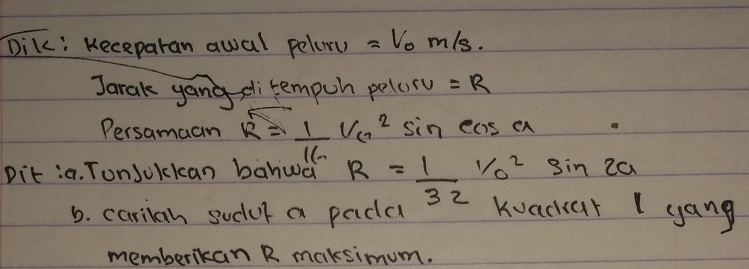 Dik: Kecepatan awal peluru = V₀ m/s.
Jarak yang ditempuh peluru = R
Persamaan R = 1/16 V₀² sin cos a
Dit : a. Tunjukkan bahwa R = 1/32 V₀² Sin 2a
b. carilah sudut a pada kuadrat I yang
memberikan R maksimum.